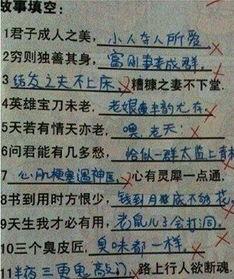 故事填空：
1君子成人之美，小人夺人所爱
2穷则独善其身，富则妻妾成群
3 结发之夫不上床，糟糠之妻不下堂。
4英雄宝刀未老，老娘风韵尤存
5天若有情天亦老，嘿，老天
6问君能有几多愁，恰似一群太监上青楼
7 心肌梗塞遇神医，心有灵犀一点通。
8书到用时方恨少，钱到月底不够花
9天生我才必有用，老鼠儿子会打洞
10三个臭皮匠，臭味都一样
11半夜三更鬼敲门，路上行人欲断魂